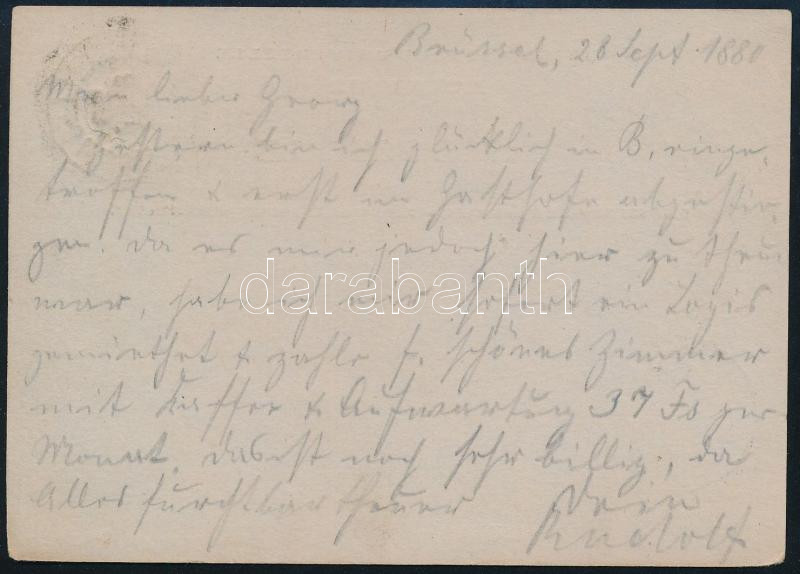 Brüssel, 28 Sept. 1880
Mein lieber Georg
Gestern bin ich glücklich in B. einge-
troffen & erst im Gasthofe abgestie-
gen. da es mir jedoch hier zu theuer
war, habe ich mir sofort ein Logis
gemiethet & zahle f. schönes Zimmer
mit Kaffee & Aufwartung 37 Fs per
Monat. das ist noch sehr billig, da
Alles furchtbar theuer
Dein
Rudolf
darabanth